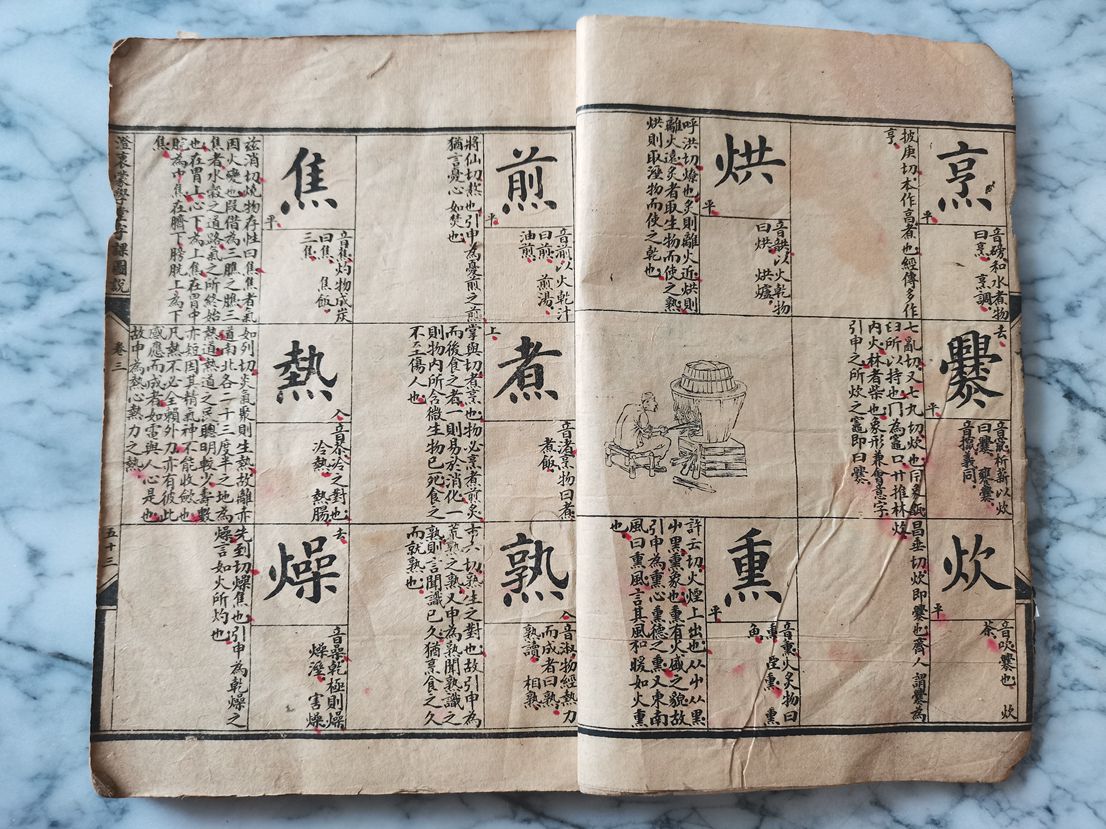 烹
平
音磅和水煮物
曰烹 烹調
披庚切本作亯煮也經傳多作
亨
爨
去
平
七亂切又七丸切炊也𦥑象甑
臼所以持也冂為竈口廾推林
內火林者柴也象形兼會意字
引申之所炊之竈即曰爨
炊
平
音吹爨也 炊
茶
昌垂切炊即爨也齊人謂爨為
炊
烘
平
曰烘 烘爐
呼洪切燎也炙則離火近烘則
離火遠炙者取生物而使之熟
烘則取溼物而使之乾也
熏
平
音熏火炙物曰
熏 熏
角
許云切火煙上出也从屮从黑
屮黑熏象也熏有火盛之貌故
引申為熏心熏德之熏又東南
風曰熏風言其風和暖如火熏
也
煎
平
音前以火乾汁
曰煎 煎湯
油煎
將仙切熬也引申為憂煎之煎
猶言憂心如焚也
煮
上
音渚烹物曰煮
煮飯
掌與切煮烹也物必烹煮煎炙
而後食之者一則易於消化一
則物內所含微生物已死食之
不至傷人也
熟
入
音淑物經熱力
而成者曰熟
熟讀 相熟
市六切熟生之對也故引申為
荒熟之熟又申為熟聞熟識之
熟則言聞識已久猶烹食之久
而就熟也
焦
平
音蕉灼物成炭
曰焦 焦飯
三焦
茲消切燒物存性曰焦焦者氣
因火變也段借為三膲之膲三
焦者水穀之道路氣之所終始
也在胃上心下為上焦在胃中
脘為中焦在臍下膀胱上為下
焦
熱
入
冷之對也
冷熱 熱腸
如列切炎氣聚則生熱故離赤
道南北各二十三度半之地為
熱道熱道之民聰明較少壽數
亦短因其精氣神不能收斂也
凡熱不必全賴外力亦有彼此
感應而成者如電與人心是也
故申為熱心熱力之熱
燥
去
音喿乾極則燥
燥溼 害燥
先到切燥焦也引申為乾燥之
燥言如火所灼也
澄衷蒙學堂字課圖說
卷三
五十三